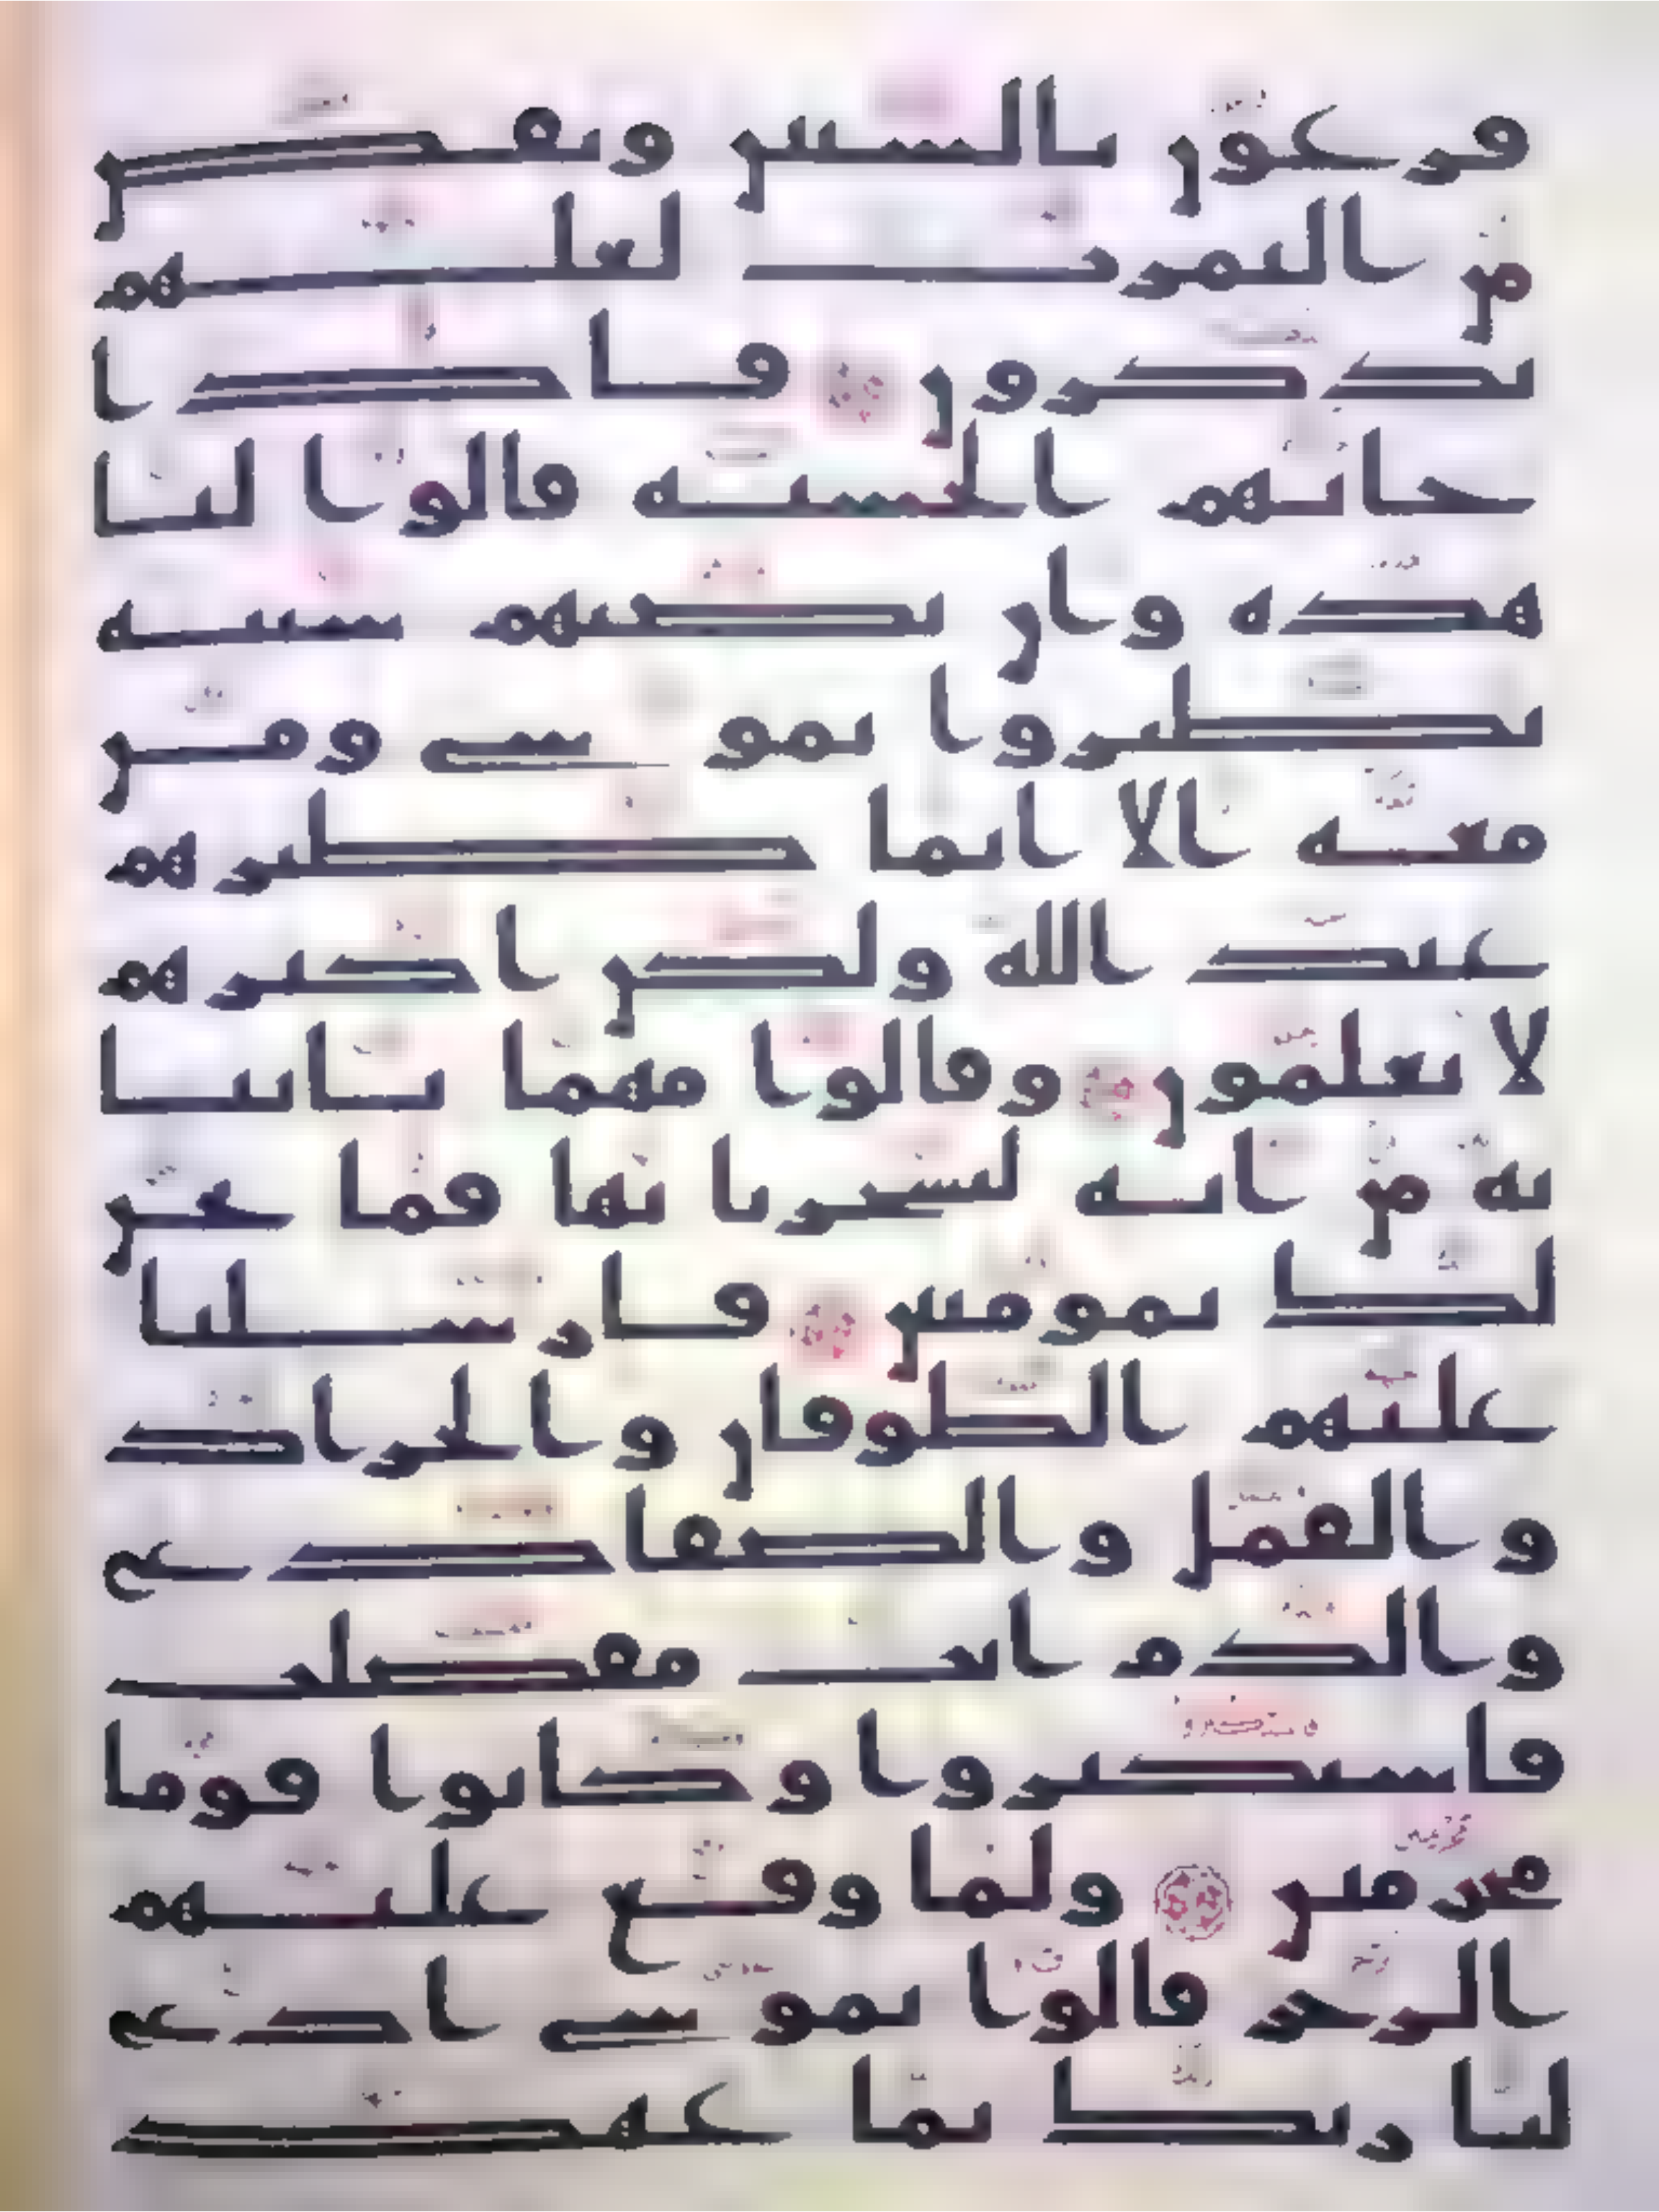 فرعون بالسنين ونقص
من الثمرت لعلهم
يذكرون فاذا
جاتهم الحسنة قالوا لنا
هذه وان تصبهم سيئة
يطيروا بموسى ومن
معه الا انما طيرهم
عند الله ولكن اكثرهم
لا يعلمون وقالوا مهما تاتنا
به من اية لتسحرنا بها فما نحن
لك بمومنين فارسلنا
عليهم الطوفان والجراد
والقمل والضفادع
والدم ايت مفصلت
فاستكبروا وكانوا قوما
مجرمين ولما وقع عليهم
الرجز قالوا يموسى ادع
لنا ربك بما عهد